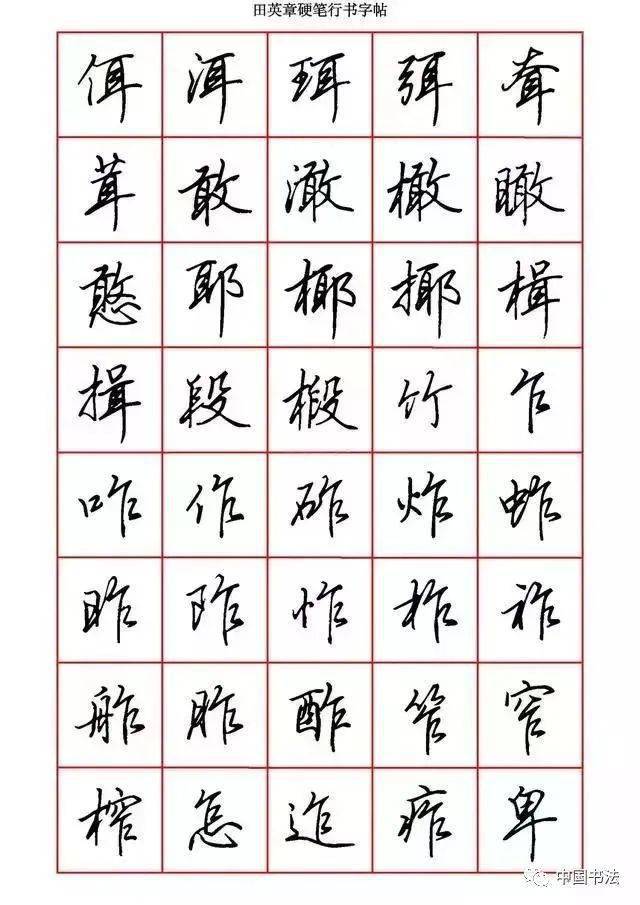 田英章硬笔行书字帖
佴 洱 珥 弭 耷
茸 敢 澉 橄 瞰
憨 耶 椰 揶 楫
揖 段 椴 竹 乍
咋 作 砟 炸 蚱
昨 阼 怍 柞 祚
舴 胙 酢 笮 窄
榨 怎 迮 痄 卑
中国书法